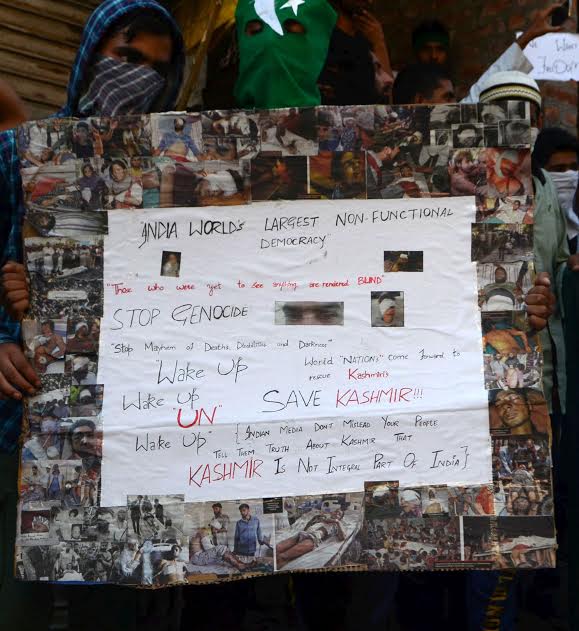 "INDIA WORLD's LARGEST NON-FUNCTIONAL
DEMOCRACY"
"Those who were yet to see anything are rendered BLIND"
STOP GENOCIDE
"Stop Mayhem of Deaths, Disabilities and Darkness"
"Wake Up
Wake Up
"UN"
Wake Up"
World "NATIONS" come forward to
rescue Kashmiris
SAVE KASHMIR!!!
{INDIAN MEDIA DON'T MISLEAD YOUR PEOPLE
TELL THEM TRUTH ABOUT KASHMIR THAT
KASHMIR IS NOT INTEGRAL PART OF INDIA}
Want